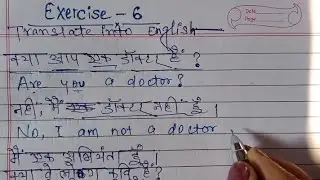 Exercise - 6
Date
Page
Translate into English
क्या आप एक डॉक्टर हैं ?
Are you a doctor?
नहीं, मैं डॉक्टर नहीं हूँ ।
No, I am not a doctor
मैं एक अभियंता हूँ ।
क्या वे लोग कवि हैं ?